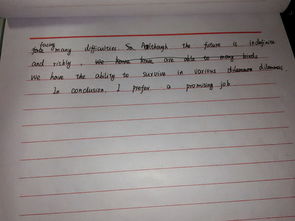 facing
many difficulties. Although the future is indefinite
and riskly, we have are able to many kinds
we have the ability to survive in various dilemmas
In conclusion, I prefer a promising job